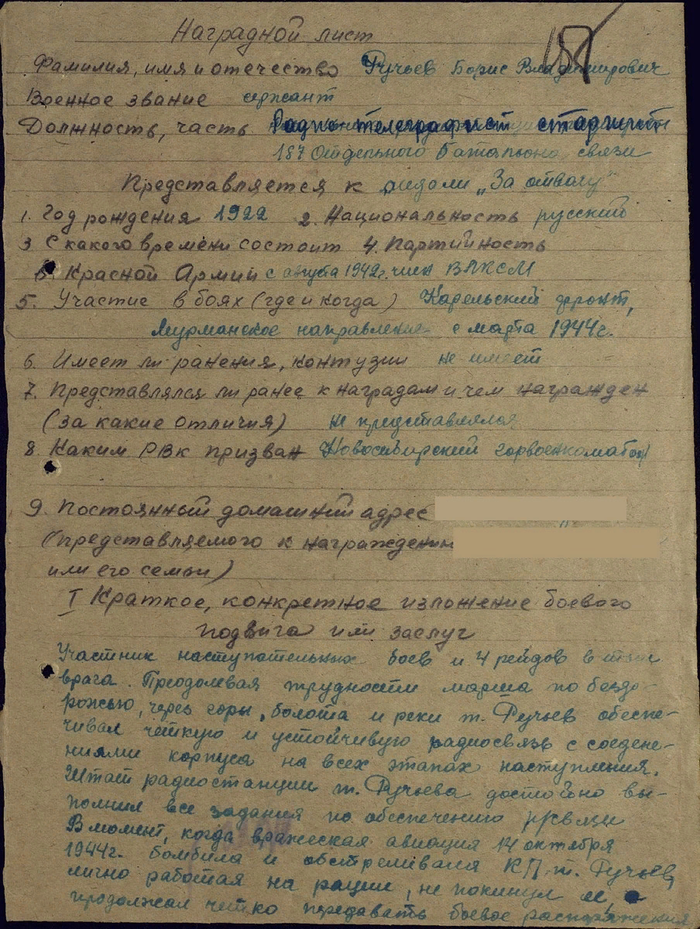 Наградной лист
187
Фамилия, имя и отечество Ручьев Борис Владимирович
Военное звание сержант
Должность, часть Радиотелеграфист старший
187 Отдельного Батальона связи
Представляется к медали „За отвагу"
1. Год рождения 1922 2. Национальность русский
3 С какого времени состоит 4. Партийность
в Красной Армии с августа 1942г. член ВЛКСМ
5. Участие в боях (где и когда) Карельский фронт,
Мурманское направление с марта 1944г.
6. Имеет ли ранения, контузии не имеет
7. Представлялся ли ранее к наградам и чем награжден
(за какие отличия) не представлялся
8 Каким РВК призван Новосибирский горвоенкомат
9. Постоянный домашний адрес
(представляемого к награждению
или его семьи)
I Краткое, конкретное изложение боевого
подвига или заслуг
Участник наступательных боев и 4 рейдов в тыл
врага. Преодолевая трудности марша по бездо-
рожью, через горы, болота и реки т. Ручьев обеспе-
чивал чёткую и устойчивую радиосвязь с соедене-
ниями корпуса на всех этапах наступления.
Штат радиостанции т. Ручьева достойно вы-
полнил все задания по обеспечению
В момент, когда вражеская авиация 14 октября
1944г. бомбила и обстреливала КП т. Ручьев,
лично работая на рации, не покинул её, а
продолжал четко передавать боевое распоряжения